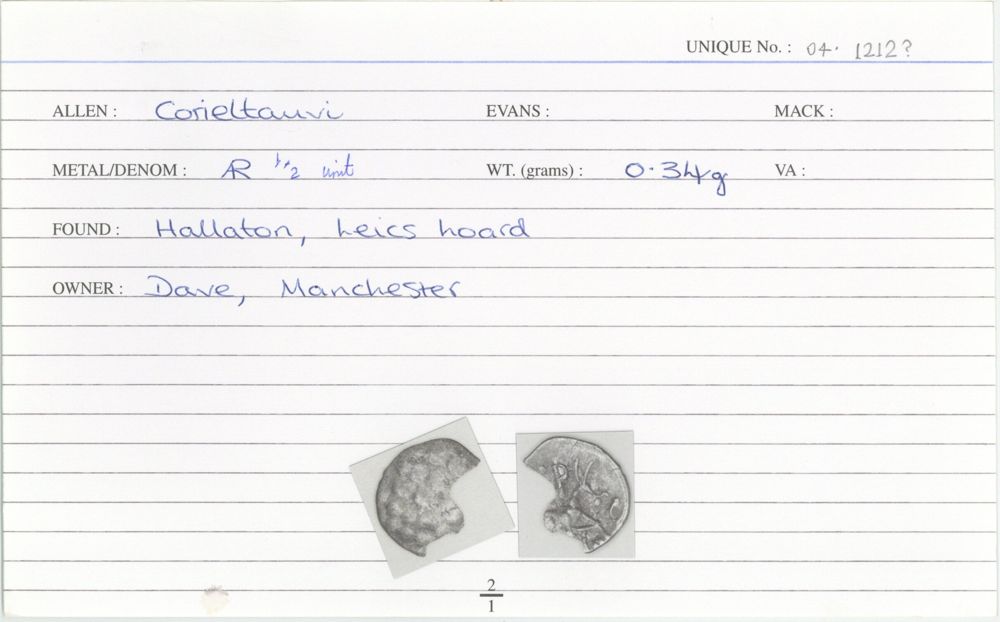 UNIQUE No. : 04. 1212?
ALLEN : Corieltauvi EVANS : MACK :
METAL/DENOM : AR 1/2 unit WT. (grams) : 0.34g VA :
FOUND : Hallaton, Leics hoard
OWNER : Dave, Manchester
2
1